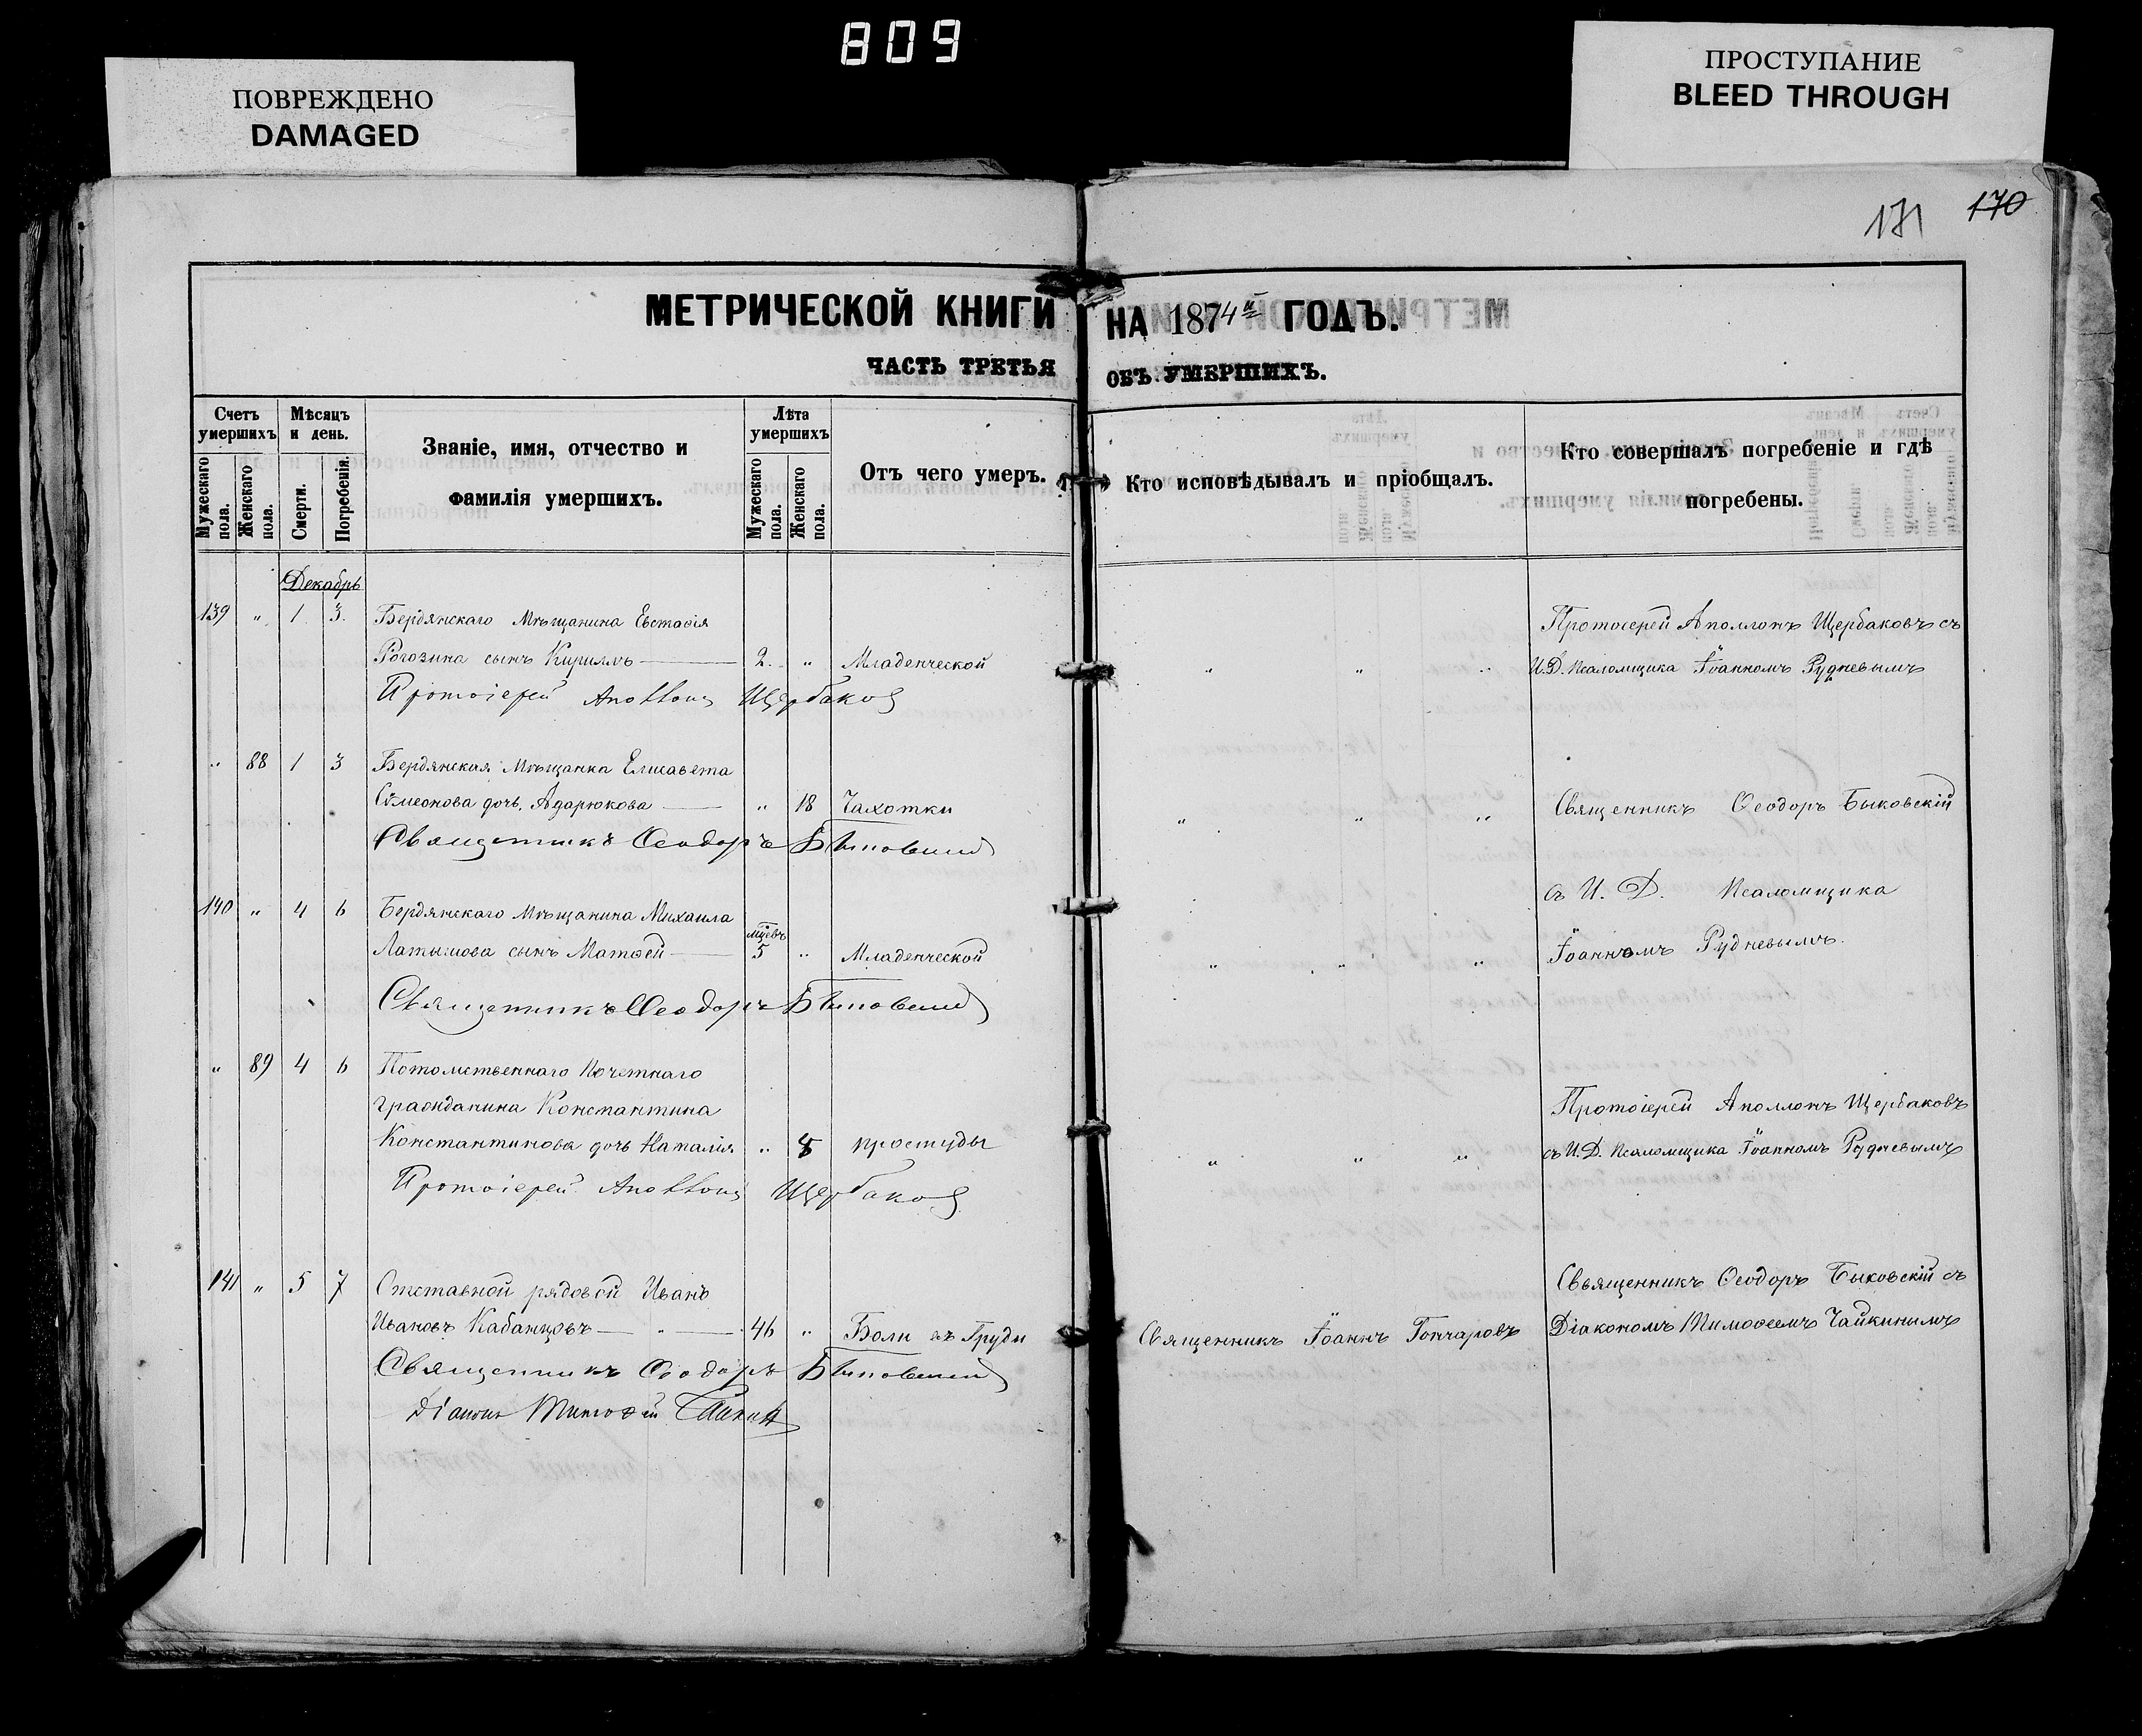 809
ПОВРЕЖДЕНО
DAMAGED
ПРОСТУПАНИЕ
BLEED THROUGH
171 170
МЕТРИЧЕСКОЙ КНИГИ НА 1874й ГОДЪ.
ЧАСТЬ ТРЕТЬЯ ОБЪ УМЕРШИХЪ.
Счетъ умершихъ
Мужескаго пола.
Женскаго пола.
Мѣсяцъ и день.
Смерти.
Погребенія.
Званіе, имя, отчество и
фамилія умершихъ.
Лѣта умершихъ
Мужескаго пола.
Женскаго пола.
Отъ чего умеръ.
Кто исповѣдывалъ и пріобщалъ.
Кто совершалъ погребеніе и гдѣ
погребены.
Декабрь
139 " 1 3. Бердянскаго Мѣщанина Евстафія
Рогозина сынъ Кириллъ — 2. " Младенческой " " "
Протоіерей Аполлонъ Щербаковъ
Протоіерей Аполлонъ Щербаковъ съ
И. Д. Псаломщика Іоанномъ Рудневымъ
" 88 1 3 Бердянская Мѣщанка Елисавета
Сѵмеонова дочь Адарюкова — " 18 Чахотки " " "
Священникъ Ѳеодоръ Быковскій
Священникъ Ѳеодоръ Быковскій
съ И. Д. Псаломщика
Іоанномъ Рудневымъ.
140 " 4 6 Бердянскаго Мѣщанина Михаила
Латышова сынъ Матѳей — мцевъ 5 " Младенческой " " "
Священникъ Ѳеодоръ Быковскій
" 89 4 6 Потомственнаго Почетнаго
гражданина Константина
Константинова дочь Наталія " 8 простуды " " "
Протоіерей Аполлонъ Щербаковъ
Протоіерей Аполлонъ Щербаковъ
съ И. Д. Псаломщика Іоанномъ Рудневымъ
141 " 5 7 Отставной рядовой Иванъ
Ивановъ Кабанцовъ — " — 46 " Боли въ Груди
Священникъ Ѳеодоръ Быковскій
Діаконъ Тимоѳей Чайкинъ
Священникъ Іоаннъ Гончаровъ
Священникъ Ѳеодоръ Быковскій съ
Діакономъ Тимоѳеемъ Чайкинымъ